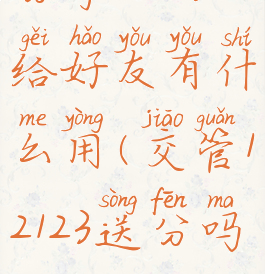 gěi hǎo yǒu yǒu shí
给好友有什
me yòng jiāo guǎn
么用(交管1
sòng fēn ma
2123送分吗